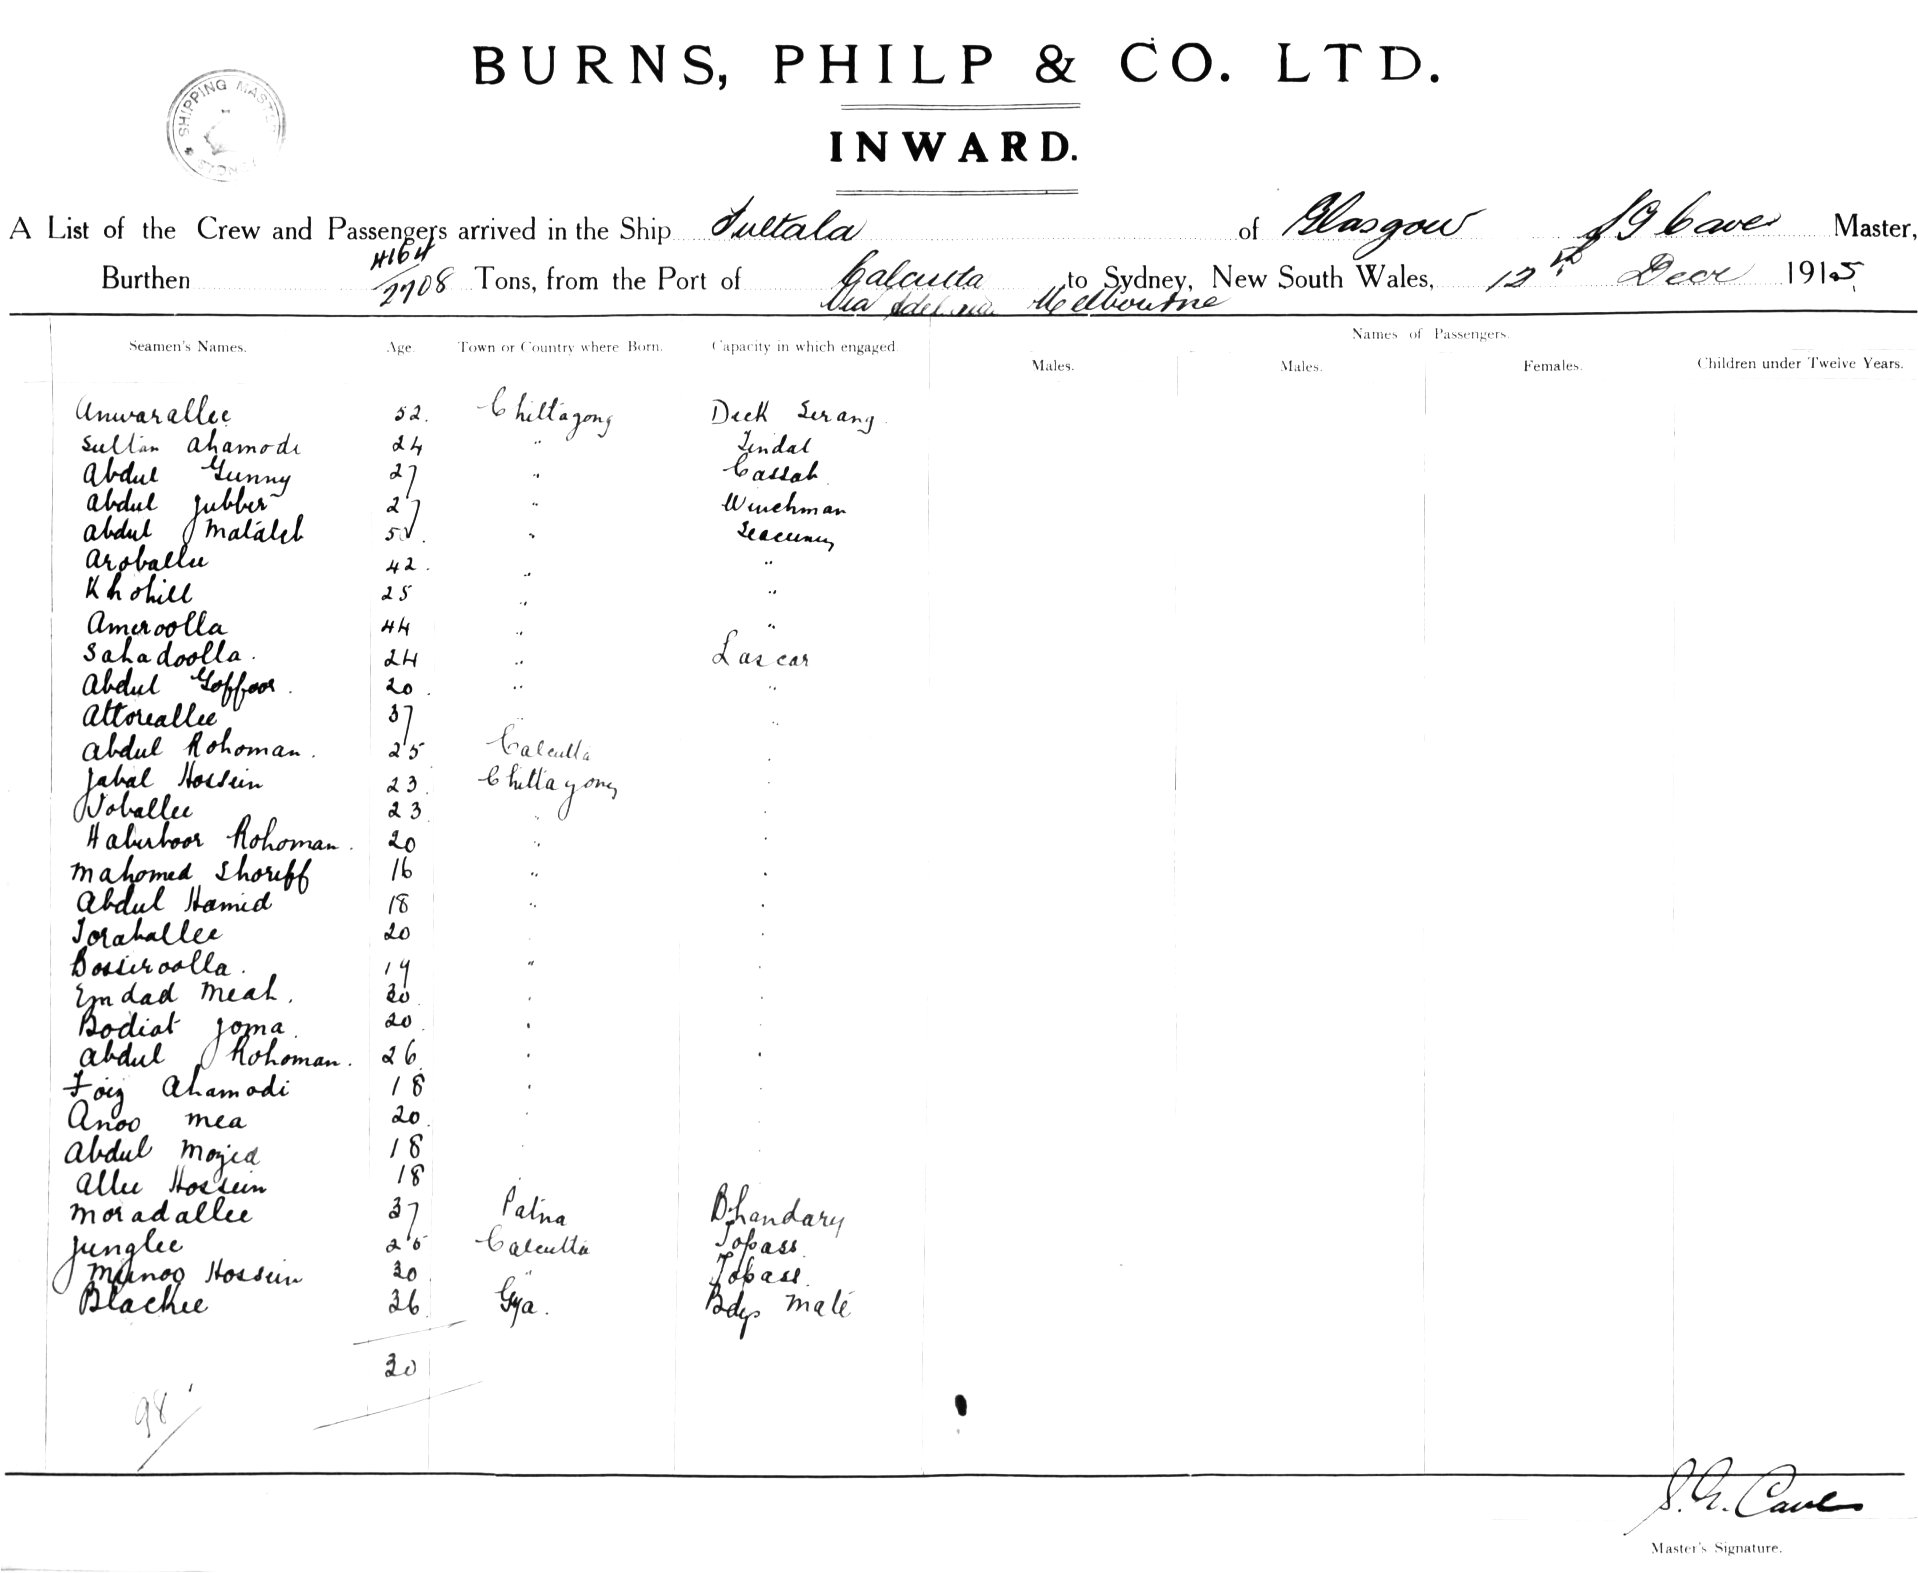 BURNS, PHILP & CO. LTD.
SHIPPING MASTER SYDNEY
INWARD.
A List of the Crew and Passengers arrived in the Ship Fultala of Glasgow S G Caves Master,
Burthen 4164/2708 Tons, from the Port of Calcutta to Sydney, New South Wales, 12th Decr 1915
Via Melbourne
Names of Passengers.
Seamen's Names. Age. Town or Country where Born. Capacity in which engaged. Males. Males. Females. Children under Twelve Years.
Anwarallee 52. Chittagong Deck Serang
Sultan Ahamodi 24 " Tindal
Abdul Gunny 27 " Cassab
Abdul Jubber 27 " Winchman
Abdul Mataleb " Seacunny
Aroballee 42. " "
Khohill 25 " "
Ameroolla 44 " "
Sahadoolla. 24 " Lascar
Abdul Goffoor. 20. " "
Attoreallee 37 " "
Abdul Rohoman. 25 Calcutta "
Jabal Hossein 23. Chittagong "
Noballee 23 " "
Haberboor Rohoman. 20 " "
Mahomed Shoriff 16 " "
Abdul Hamid 18 " "
Toraballee 20 " "
Bosseroolla. 19 " "
Emdad Meah. 30 " "
Bodiat Joma. 20. " "
Abdul Rohoman. 26 " "
Foiz Ahamodi 18 " "
Anoo Mea 20. " "
Abdul Mozid 18 " "
Allee Hossein 18 " "
Moradallee 37 Patna Bhandary
Junglee 25 Calcutta Topass
Munoo Hossein 30 " Topass
Blackee 36 Gya. Bdys Mate
30
98
S. G. Caves
Master's Signature.